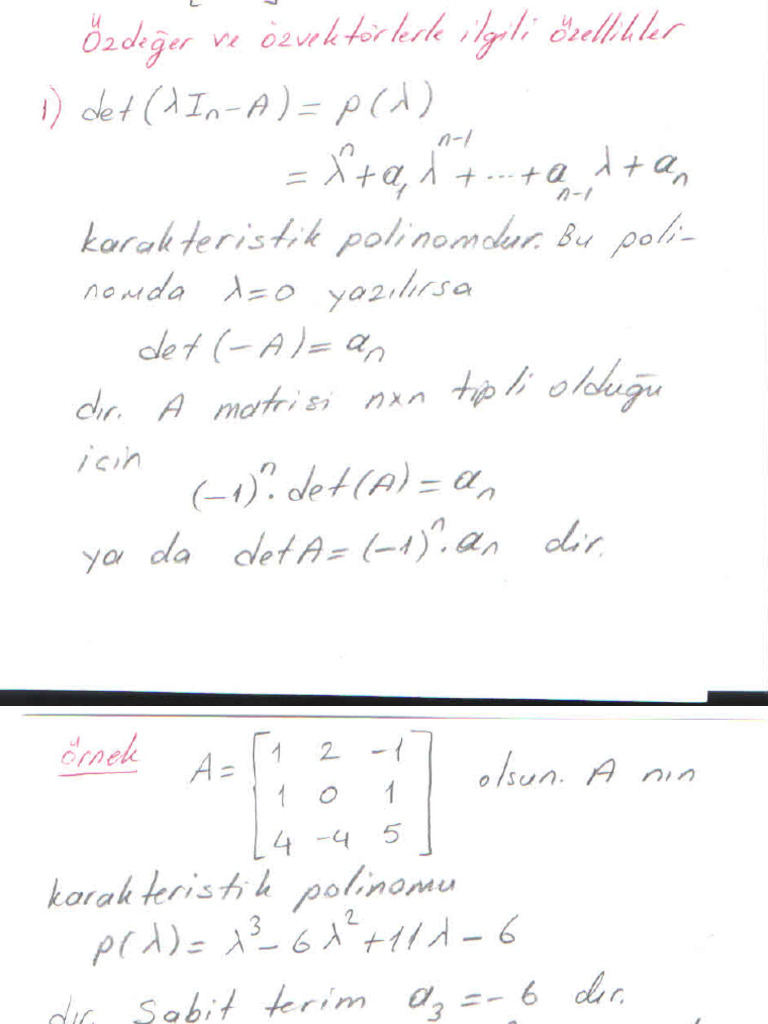 Özdeğer ve özvektörlerle ilgili özellikler
1) det(λIn-A) = p(λ)
= λ^n + a_1 λ^{n-1} + ... + a_{n-1} λ + a_n
karakteristik polinomdur. Bu poli-
nomda λ=0 yazılırsa
det(-A) = a_n
dır. A matrisi nxn tipli olduğu
için
(-1)^n . det(A) = a_n
ya da detA = (-1)^n . a_n dir.
örnek A = [1 2 -1
1 0 1
4 -4 5] olsun. A nın
karakteristik polinomu
p(λ) = λ^3 - 6λ^2 + 11λ - 6
dır. Sabit terim a_3 = -6 dır.